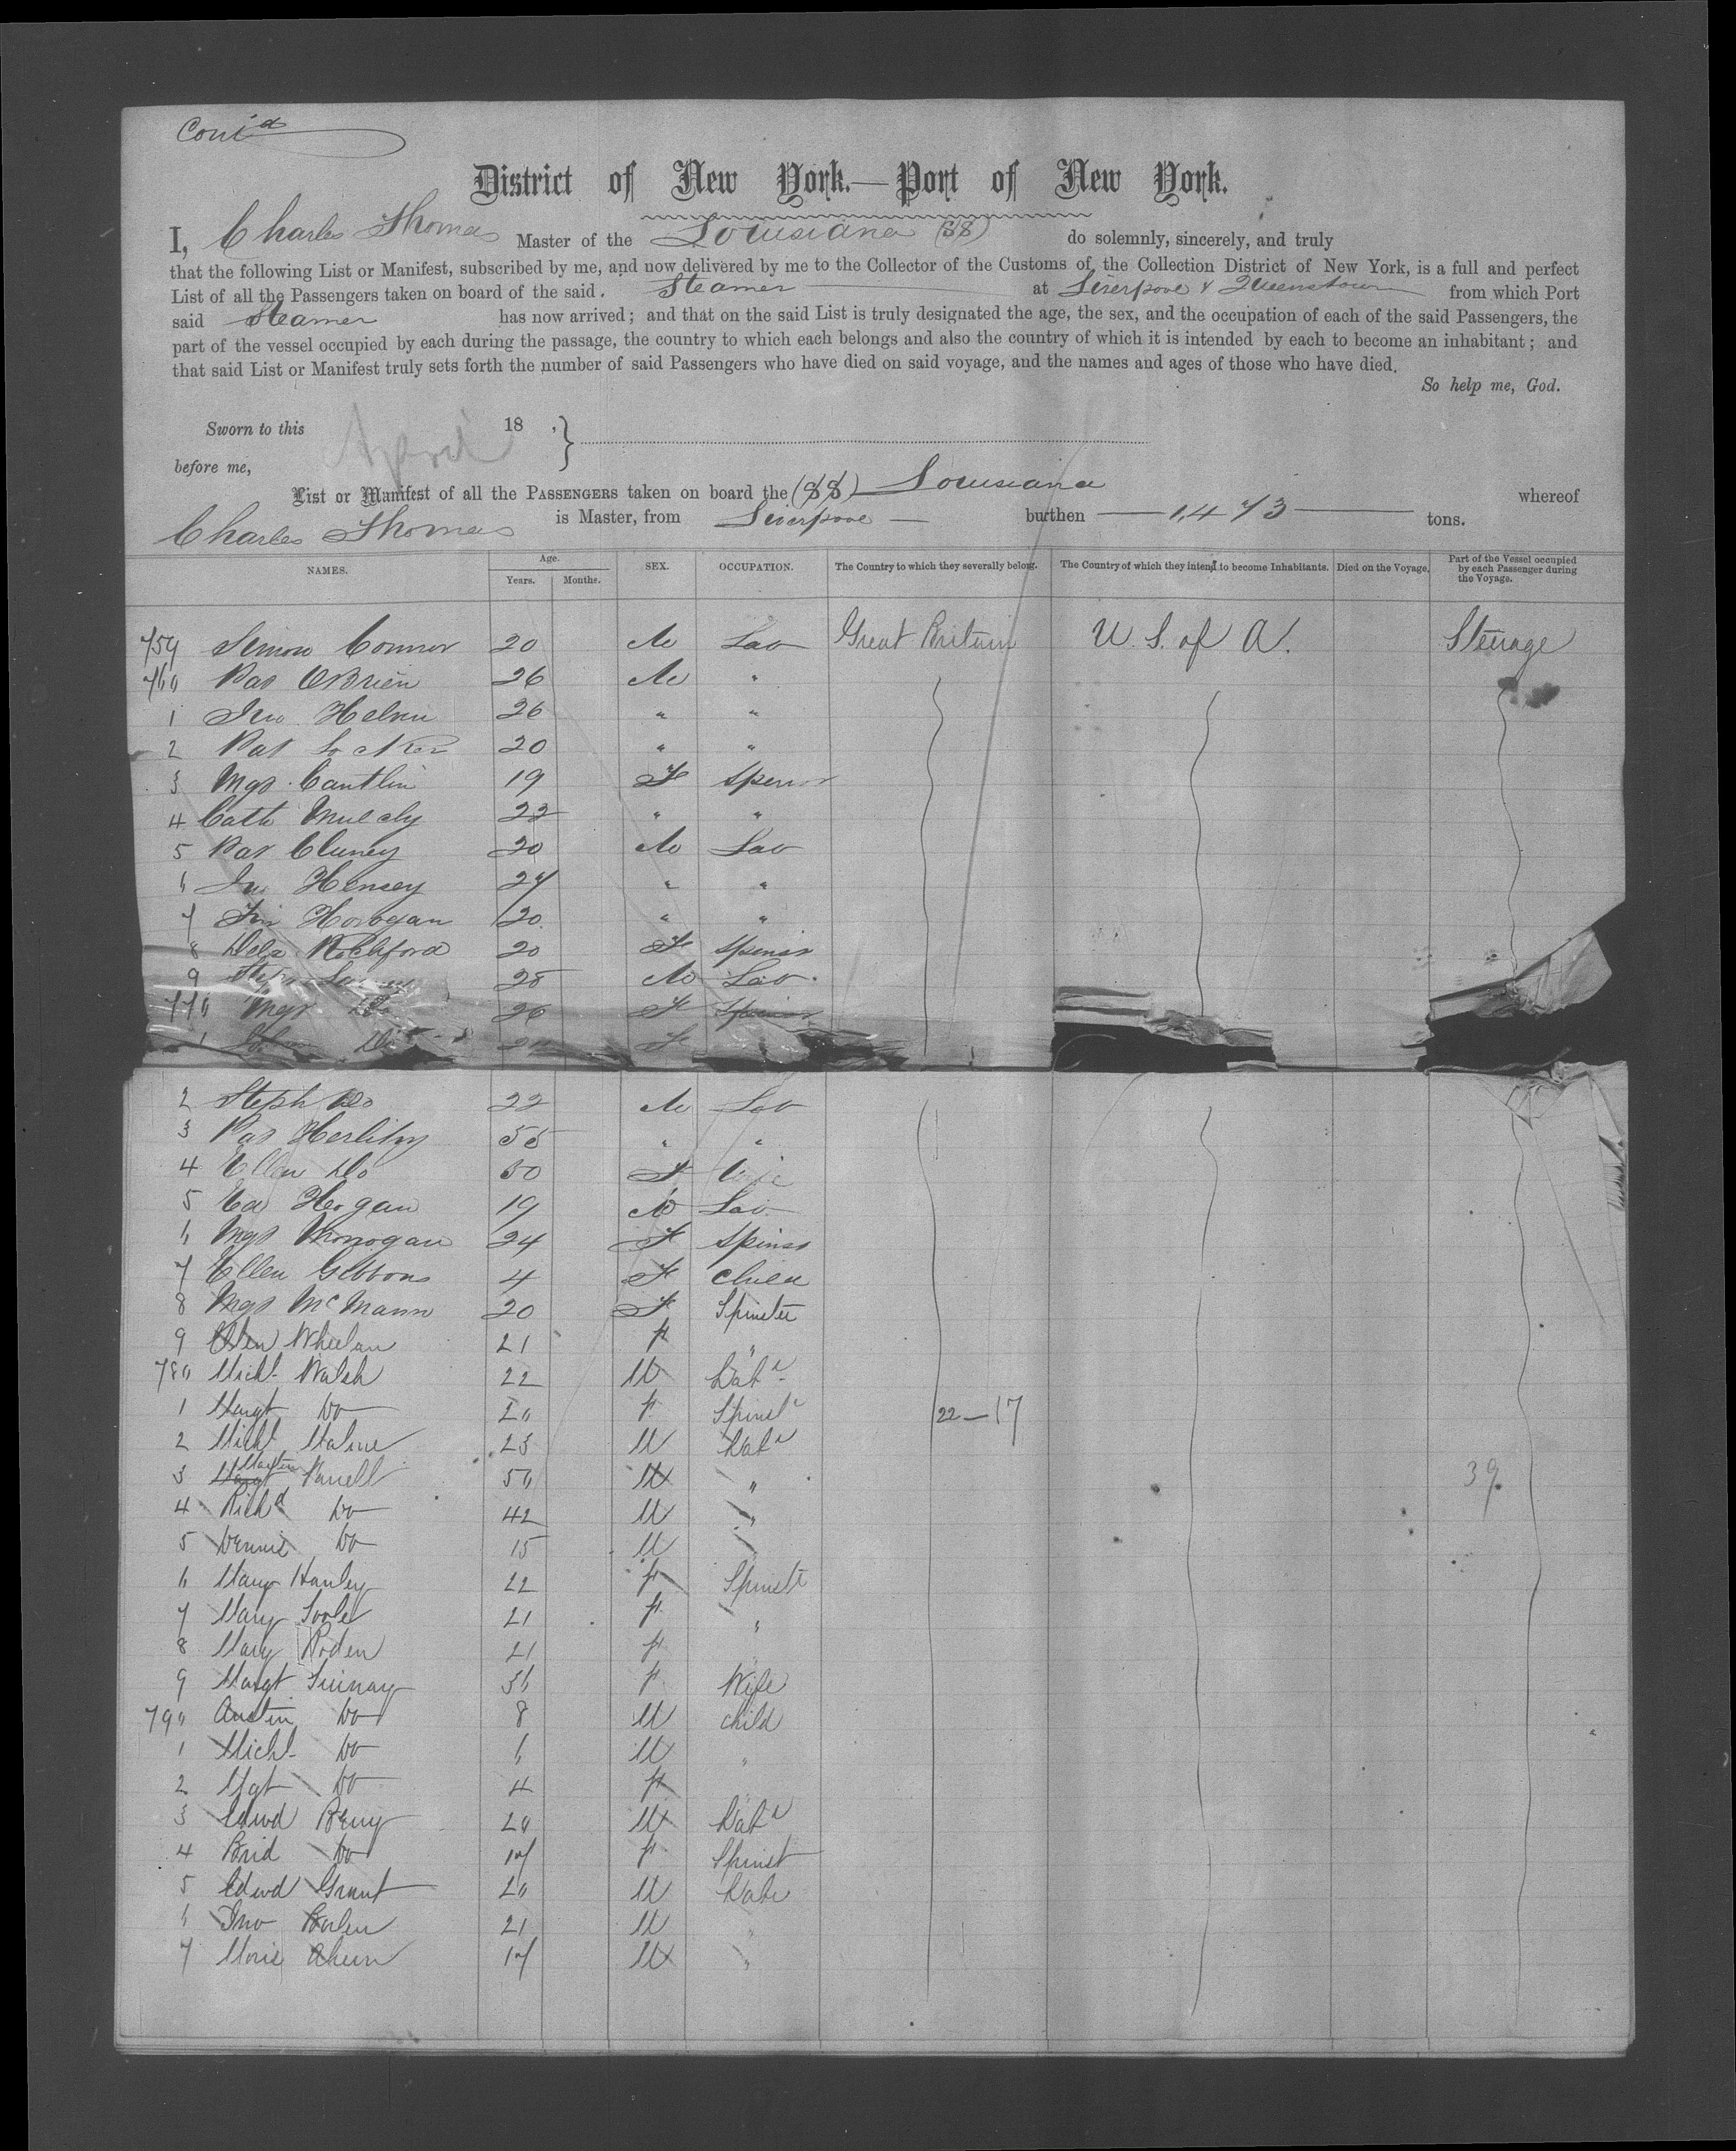 Cont'd
District of New York.—Port of New York.
I, Charles Thomas Master of the Louisiana (SS) do solemnly, sincerely, and truly
that the following List or Manifest, subscribed by me, and now delivered by me to the Collector of the Customs of the Collection District of New York, is a full and perfect
List of all the Passengers taken on board of the said Steamer at Liverpool & Queenstown from which Port
said Steamer has now arrived; and that on the said List is truly designated the age, the sex, and the occupation of each of the said Passengers, the
part of the vessel occupied by each during the passage, the country to which each belongs and also the country of which it is intended by each to become an inhabitant; and
that said List or Manifest truly sets forth the number of said Passengers who have died on said voyage, and the names and ages of those who have died.
So help me, God.
Sworn to this April 18 ,
before me,
List or Manifest of all the Passengers taken on board the (SS) Louisiana whereof
Charles Thomas is Master, from Liverpool burthen 1473 tons.
NAMES. Age. Years. Months. SEX. OCCUPATION. The Country to which they severally belong. The Country of which they intend to become Inhabitants. Died on the Voyage. Part of the Vessel occupied by each Passenger during the Voyage.
759 Simon Connor 20 M Lab Great Britain U. S. of A. Steerage
760 Pat OBrien 26 M "
1 Jno 26 " "
2 Pat 20 " "
3 Mgt Cantlin 19 F
4 Cath 22 " "
5 Pat Cluney 20 M Lab
6 Jno Hensey 27 " "
7 Horogan 20 " "
8 Rochford 20 F Spinsr
9 25 M Lab
770 Mgt Do 26 F Spinsr
1 Do F
2 Steph Do 22 M Lab
3 Pat Herlihy 55 " "
4 Ellen Do 50 F Wife
5 Ed Hogan 19 M Lab
6 Mgt Monogan 24 F Spinsr
7 Ellen Gibbons 4 F Child
8 Mgt McMann 20 F Spinster
9 Ellen Whelan 21 F "
780 Michl Walsh 22 M Labr
1 Margt Do 20 F Spinstr 22—17
2 Michl Malone 23 M Labr
3 Martin Farrell 50 M " 39
4 Richd Do 42 M "
5 Dennis Do 15 M "
6 Mary Hanley 22 F Spinstr
7 Mary Toole 21 F "
8 Mary Roden 21 F
9 Margt Finnay 36 F Wife
790 Austin Do 8 M child
1 Michl Do 6 M "
2 Mgt Do 4 F
3 Edwd Berry 20 M Labr
4 Brid Do 17 F Spinst
5 Edwd Grant 20 M Labr
6 Jno 21 M "
7 Moris Ahern 17 M "